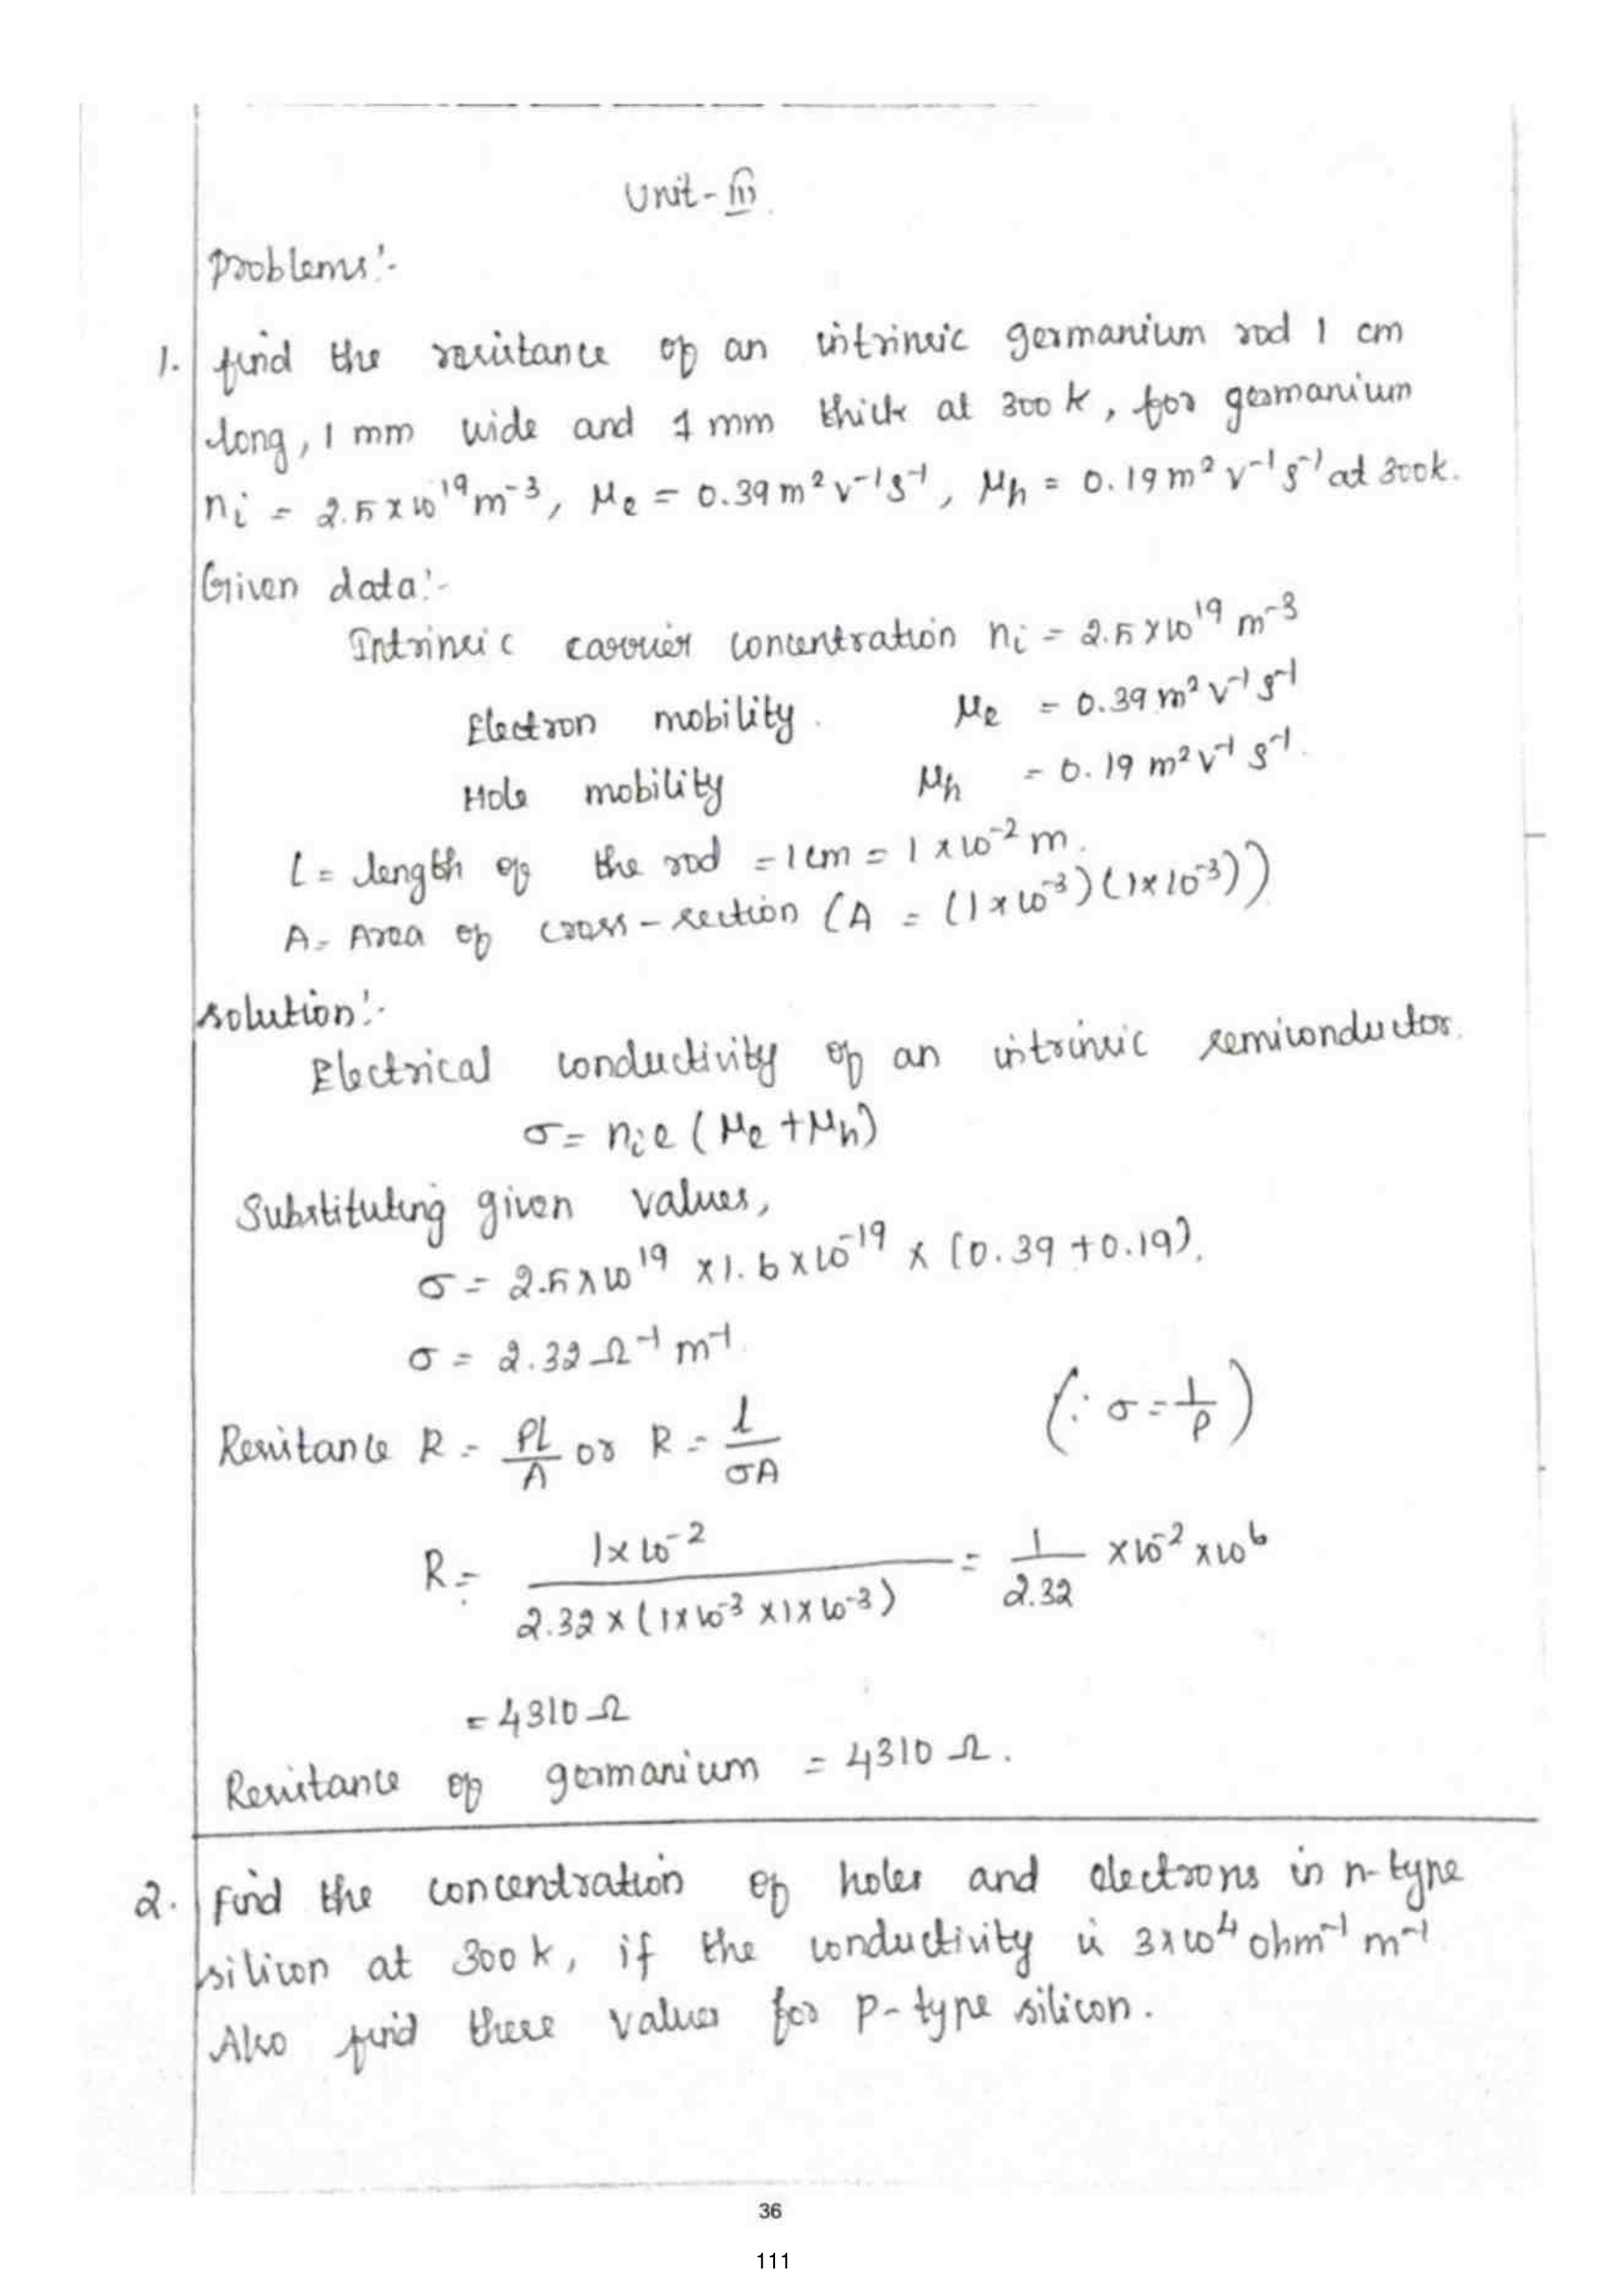 Unit - III.
Problems:-
1. find the resistance of an intrinsic germanium rod 1 cm
long, 1 mm wide and 1 mm thick at 300 k, for germanium
ni = 2.5 x 10¹⁹ m⁻³, μe = 0.39 m² v⁻¹ s⁻¹, μh = 0.19 m² v⁻¹ s⁻¹ at 300k.
Given data:-
Intrinsic carrier concentration ni = 2.5 x 10¹⁹ m⁻³
Electron mobility. μe = 0.39 m² v⁻¹ s⁻¹
Hole mobility μh = 0.19 m² v⁻¹ s⁻¹.
l = length of the rod = 1 cm = 1 x 10⁻² m.
A = Area of cross-section (A = (1 x 10⁻³)(1 x 10⁻³))
solution:-
Electrical conductivity of an intrinsic semiconductor.
σ = nie (μe + μh)
Substituting given values,
σ = 2.5 x 10¹⁹ x 1.6 x 10⁻¹⁹ x (0.39 + 0.19).
σ = 2.32 Ω⁻¹ m⁻¹.
Resistance R = ρl/A or R = l/σA (∵ σ = 1/ρ)
R = 1 x 10⁻² / 2.32 x (1 x 10⁻³ x 1 x 10⁻³) = 1/2.32 x 10⁻² x 10⁶
= 4310 Ω
Resistance of germanium = 4310 Ω.
2. Find the concentration of holes and electrons in n-type
silicon at 300 k, if the conductivity is 3 x 10⁴ ohm⁻¹ m⁻¹
Also find these values for p-type silicon.
36
111